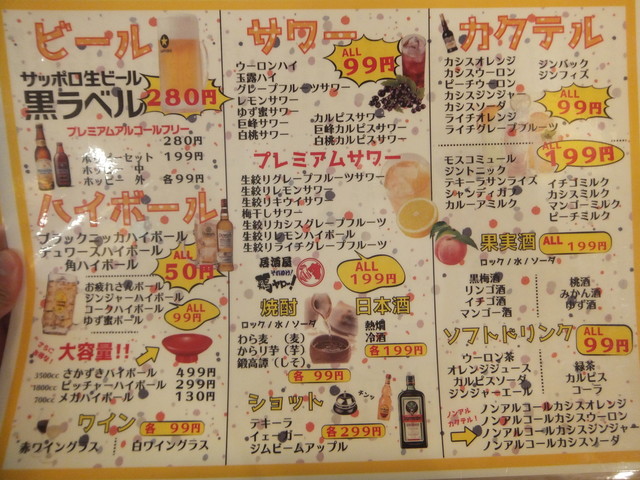 ビール
サッポロ生ビール
黒ラベル 280円
プレミアムアルコールフリー
280円
ホッピーセット 199円
ホッピー 中
ホッピー 外 各99円
ハイボール
ブラックニッカハイボール
デュワーズハイボール
角ハイボール
ALL
50円
お疲れさんボール
ジンジャーハイボール
コークハイボール
ゆず蜜ボール
ALL
99円
さらに得!
大容量!!
3500cc さかずきハイボール 499円
1800cc ピッチャーハイボール 299円
700cc メガハイボール 130円
ワイン 各 99円
赤ワイングラス 白ワイングラス
サワー
ALL
99円
ウーロンハイ
玉露ハイ
グレープフルーツサワー
レモンサワー
ゆず蜜サワー
巨峰サワー
白桃サワー
カルピスサワー
巨峰カルピスサワー
白桃カルピスサワー
プレミアムサワー
生絞りグレープフルーツサワー
生絞りレモンサワー
生絞りキウイサワー
梅干しサワー
生絞りカシスグレープフルーツ
生絞りレモンハイボール
生絞りライチグレープフルーツ
ALL
199円
居酒屋
それゆけ!
鶏ヤロー!
焼酎
ロック/水/ソーダ
わら麦(麦)
からり芋(芋)
鍛高譚(しそ)
各 99円
日本酒
熱燗
冷酒
各199円
ショット
チンッ
テキーラ
イェーガー
ジムビームアップル
各299円
カクテル
カシスオレンジ
カシスウーロン
ピーチウーロン
カシスジンジャー
カシスソーダ
ライチオレンジ
ライチグレープフルーツ
ジンバック
ジンフィズ
ALL
99円
モスコミュール
ジントニック
テキーラサンライズ
シャンディガフ
カルーアミルク
ALL
199円
イチゴミルク
カシスミルク
マンゴーミルク
ピーチミルク
果実酒 ALL 199円
ロック/水/ソーダ
黒梅酒
リンゴ酒
イチゴ酒
マンゴー酒
桃酒
みかん酒
ゆず酒
ソフトドリンク ALL 99円
ウーロン茶
オレンジジュース
カルピスソーダ
ジンジャーエール
緑茶
カルピス
コーラ
ノンアル
カクテル!
ノンアルコールカシスオレンジ
ノンアルコールカシスウーロン
ノンアルコールカシスジンジャー
ノンアルコールカシスソーダ